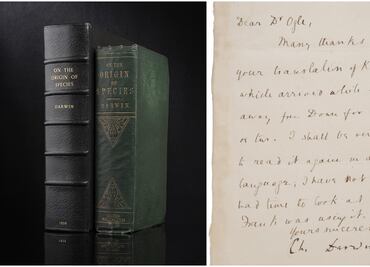 ON THE
ORIGIN
OF
SPECIES
DARWIN
1859
ON THE
ORIGIN
OF
SPECIES
DARWIN
Dear Dr Ogle,
Many thanks
your translation of K
which arrived while
away from Down for
or two. I shall be ver
to read it again in a
language; I have not
had time to look at
Frank was using it.
Yours sincere
Ch. Darwin